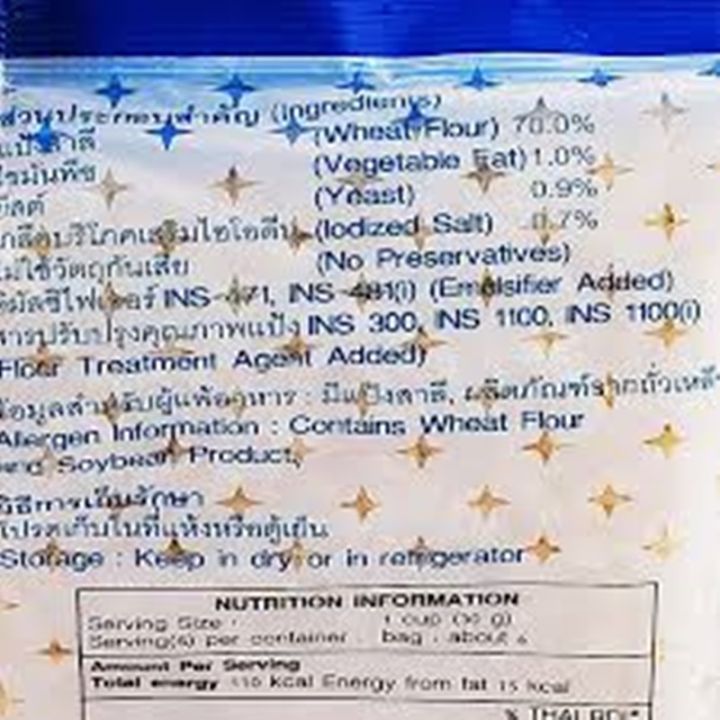 ส่วนประกอบสำคัญ (Ingredients)
แป้งสาลี (Wheat Flour) 70.0%
ไขมันพืช (Vegetable Fat) 1.0%
ยีสต์ (Yeast) 0.9%
เกลือบริโภคเสริมไอโอดีน (Iodized Salt) 0.7%
ไม่ใช้วัตถุกันเสีย (No Preservatives)
อิมัลซิไฟเออร์ INS 471, INS 481(i) (Emulsifier Added)
สารปรับปรุงคุณภาพแป้ง INS 300, INS 1100, INS 1100(i)
Flour Treatment Agent Added)
ข้อมูลสำหรับผู้แพ้อาหาร : มีแป้งสาลี, ผลิตภัณฑ์จากถั่วเหลือ
Allergen Information : Contains Wheat Flour
and Soybean Product,
วิธีการเก็บรักษา
โปรดเก็บในที่แห้งหรือตู้เย็น
Storage : Keep in dry or in refrigerator
NUTRITION INFORMATION
Serving Size : 1 cup (30 g)
Serving(s) per container bag : about
Amount Per Serving
Total energy 110 kcal Energy from fat 15 kcal
% THAI RDI*